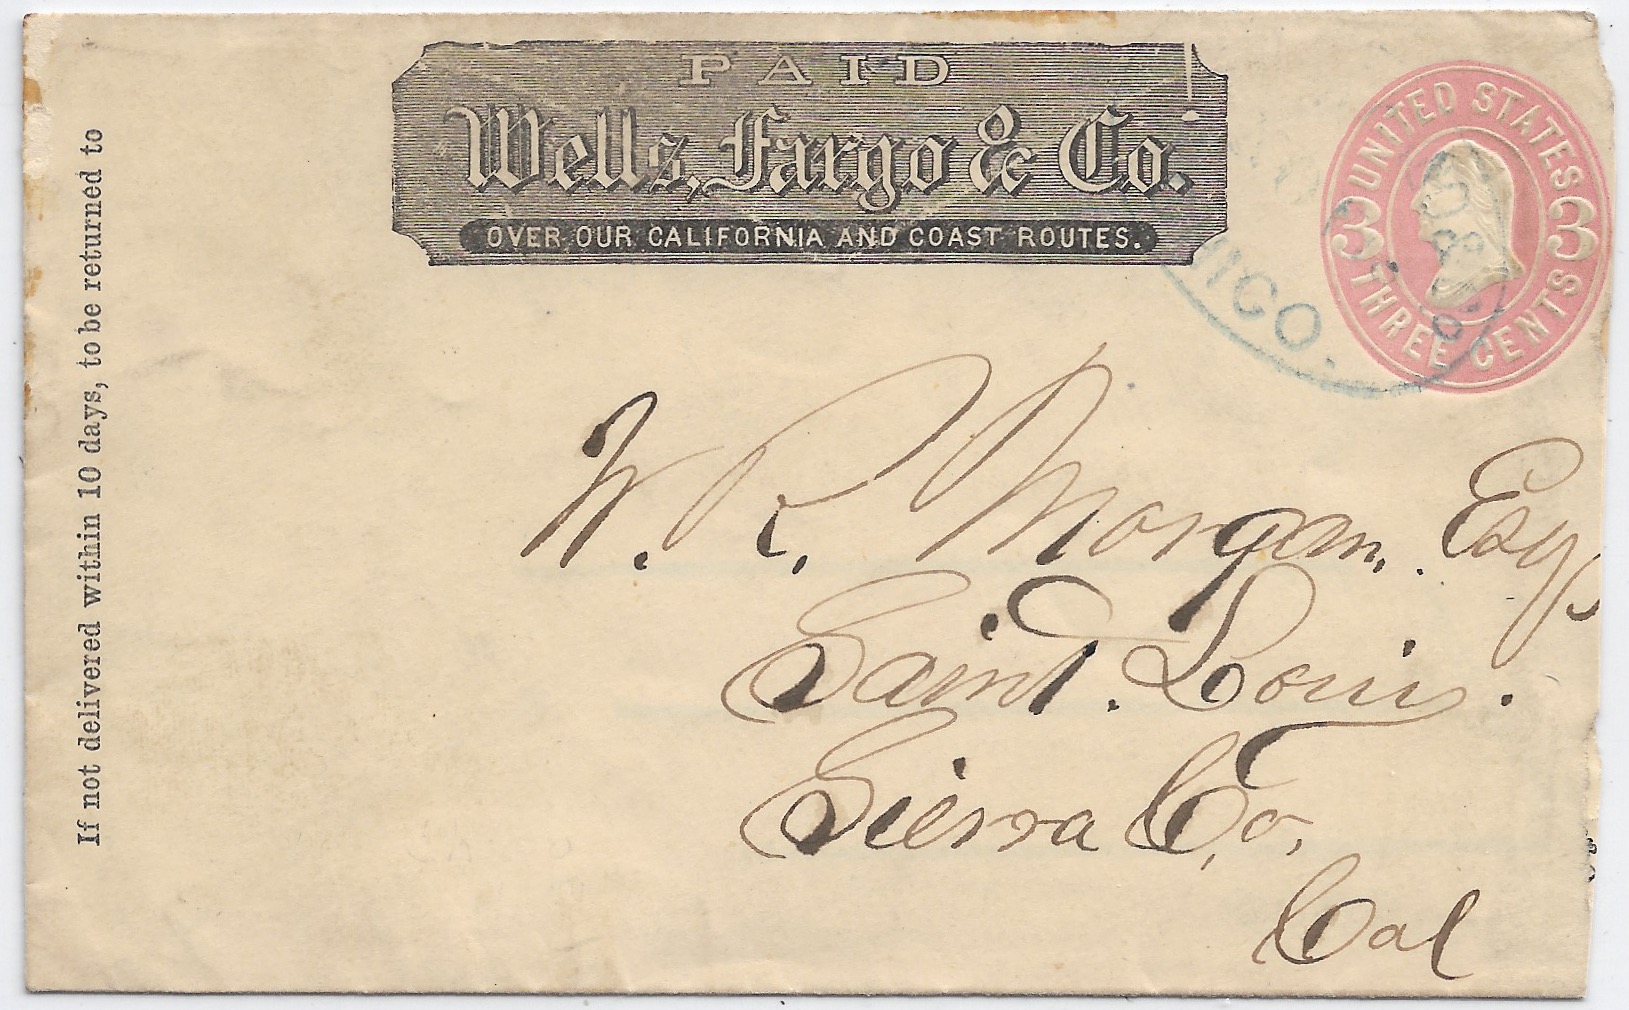 PAID
Wells, Fargo & Co.
OVER OUR CALIFORNIA AND COAST ROUTES.
UNITED STATES
3 3
THREE CENTS
CHICO.
If not delivered within 10 days, to be returned to
W. R. Morgan, Esq
Saint. Louis.
Sierra Co,
Cal